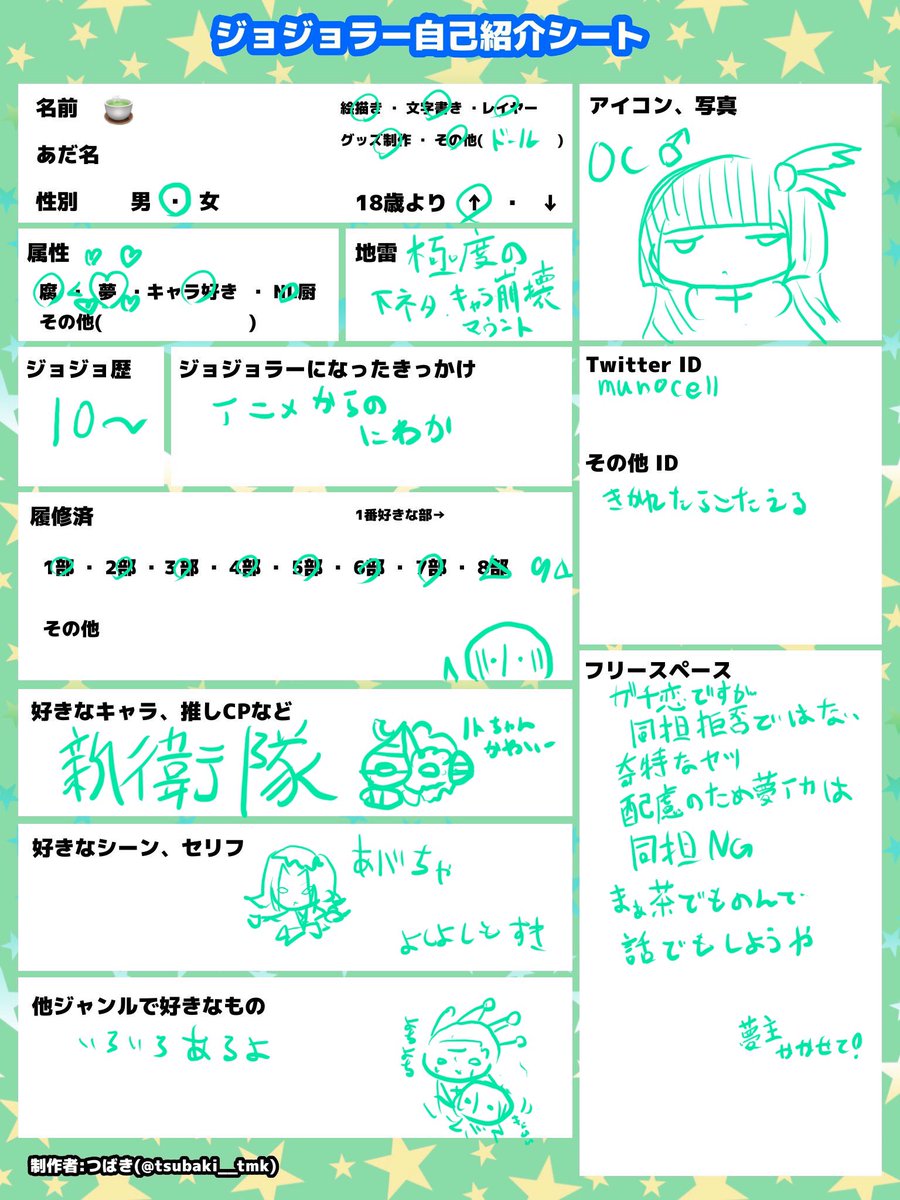 ジョジョラー自己紹介シート
名前 🍵
絵描き ・ 文字書き ・ レイヤー
グッズ制作 ・ その他( ドール )
あだ名
性別 男 ・ 女
18歳より ↑ ・ ↓
属性
腐 ・ 夢 ・ キャラ好き ・ NL厨
その他( )
地雷 極度の
下ネタ キャラ崩壊
マウント
ジョジョ歴
10〜
ジョジョラーになったきっかけ
アニメからの
にわか
履修済
1番好きな部→
1部 ・ 2部 ・ 3部 ・ 4部 ・ 5部 ・ 6部 ・ 7部 ・ 8部 9△
その他
好きなキャラ、推しCPなど
親衛隊
かわいー
好きなシーン、セリフ
あバちゃ
よしよしとすき
他ジャンルで好きなもの
いろいろあるよ
よちよち
アイコン、写真
OC♂
Twitter ID
munocell
その他 ID
きかれたらこたえる
フリースペース
ガチ恋ですが
同担拒否ではない
奇特なヤツ
配慮のため夢イカは
同担NG
まぁ茶でものんで
話でもしようや
夢主
かかせて!
制作者:つばき(@tsubaki__tmk)